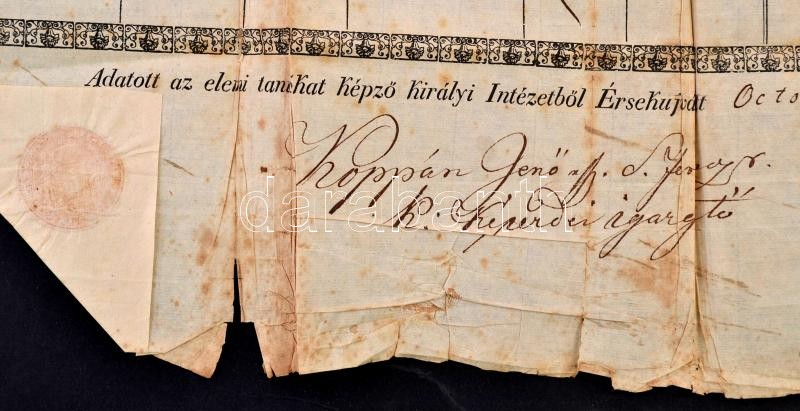 Adatott az elemi tanikat képző királyi Intézetből Érsekujvát Octo
Koppán Jenő
k. Képezdei igazgtó
darabanth